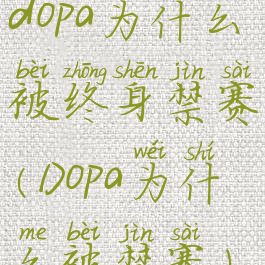 dopa为什么
bèi zhōng shēn jìn sài
被终身禁赛
wéi shí
(Dopa为什
me bèi jìn sài
么被禁赛)